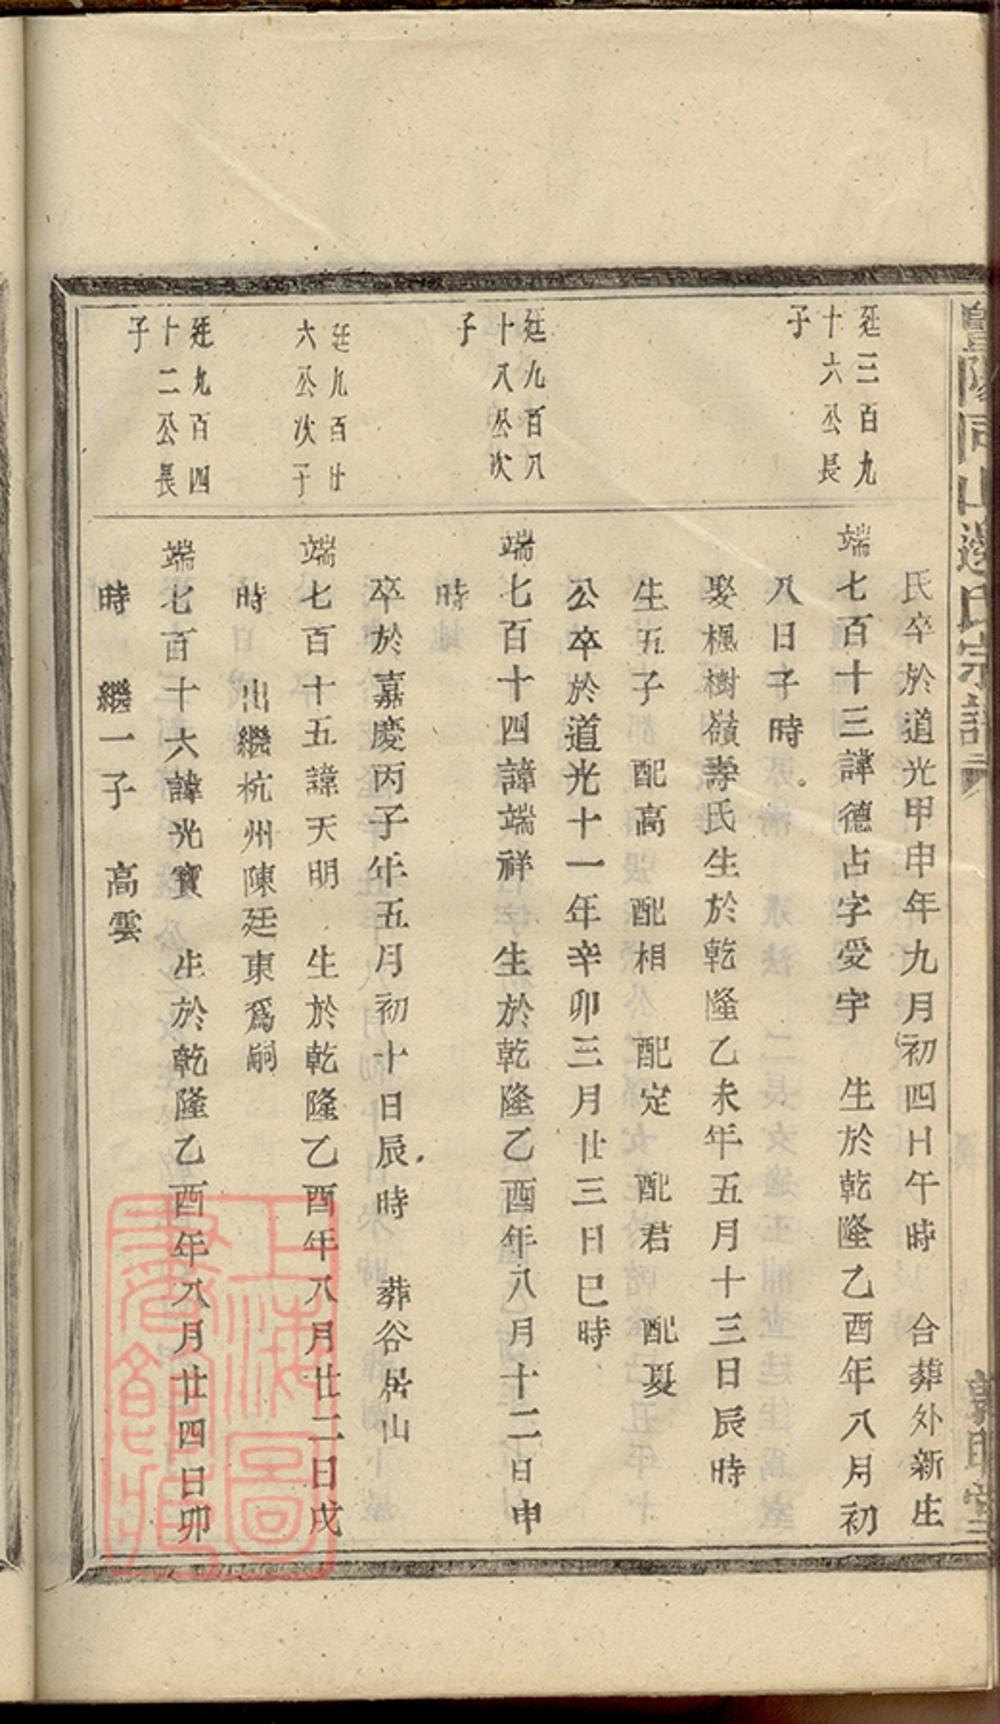 暨陽同山邊氏宗譜
敦睦堂
氏卒於道光甲申年九月初四日午時 合葬外新庄
廷三百九
十六公長
子
端七百十三諱德占字受宇 生於乾隆乙酉年八月初
八日子時
娶楓樹嶺壽氏生於乾隆乙未年五月十三日辰時
生五子 配高 配相 配定 配君 配夏
公卒於道光十一年辛卯三月廿三日巳時
廷九百八
十八公次
子
端七百十四諱端祥 生於乾隆乙酉年八月十二日申
時
卒於嘉慶丙子年五月初十日辰時 葬谷居山
廷九百廿
六公次子
端七百十五諱天明 生於乾隆乙酉年八月廿二日戌
時 出繼杭州陳廷東爲嗣
廷九百四
十二公長
子
端七百十六諱光寶 生於乾隆乙酉年八月廿四日卯
時 繼一子 高雲
上海圖
書館藏